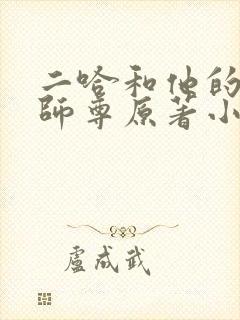 二哈和他的
師尊原著小
盧成武